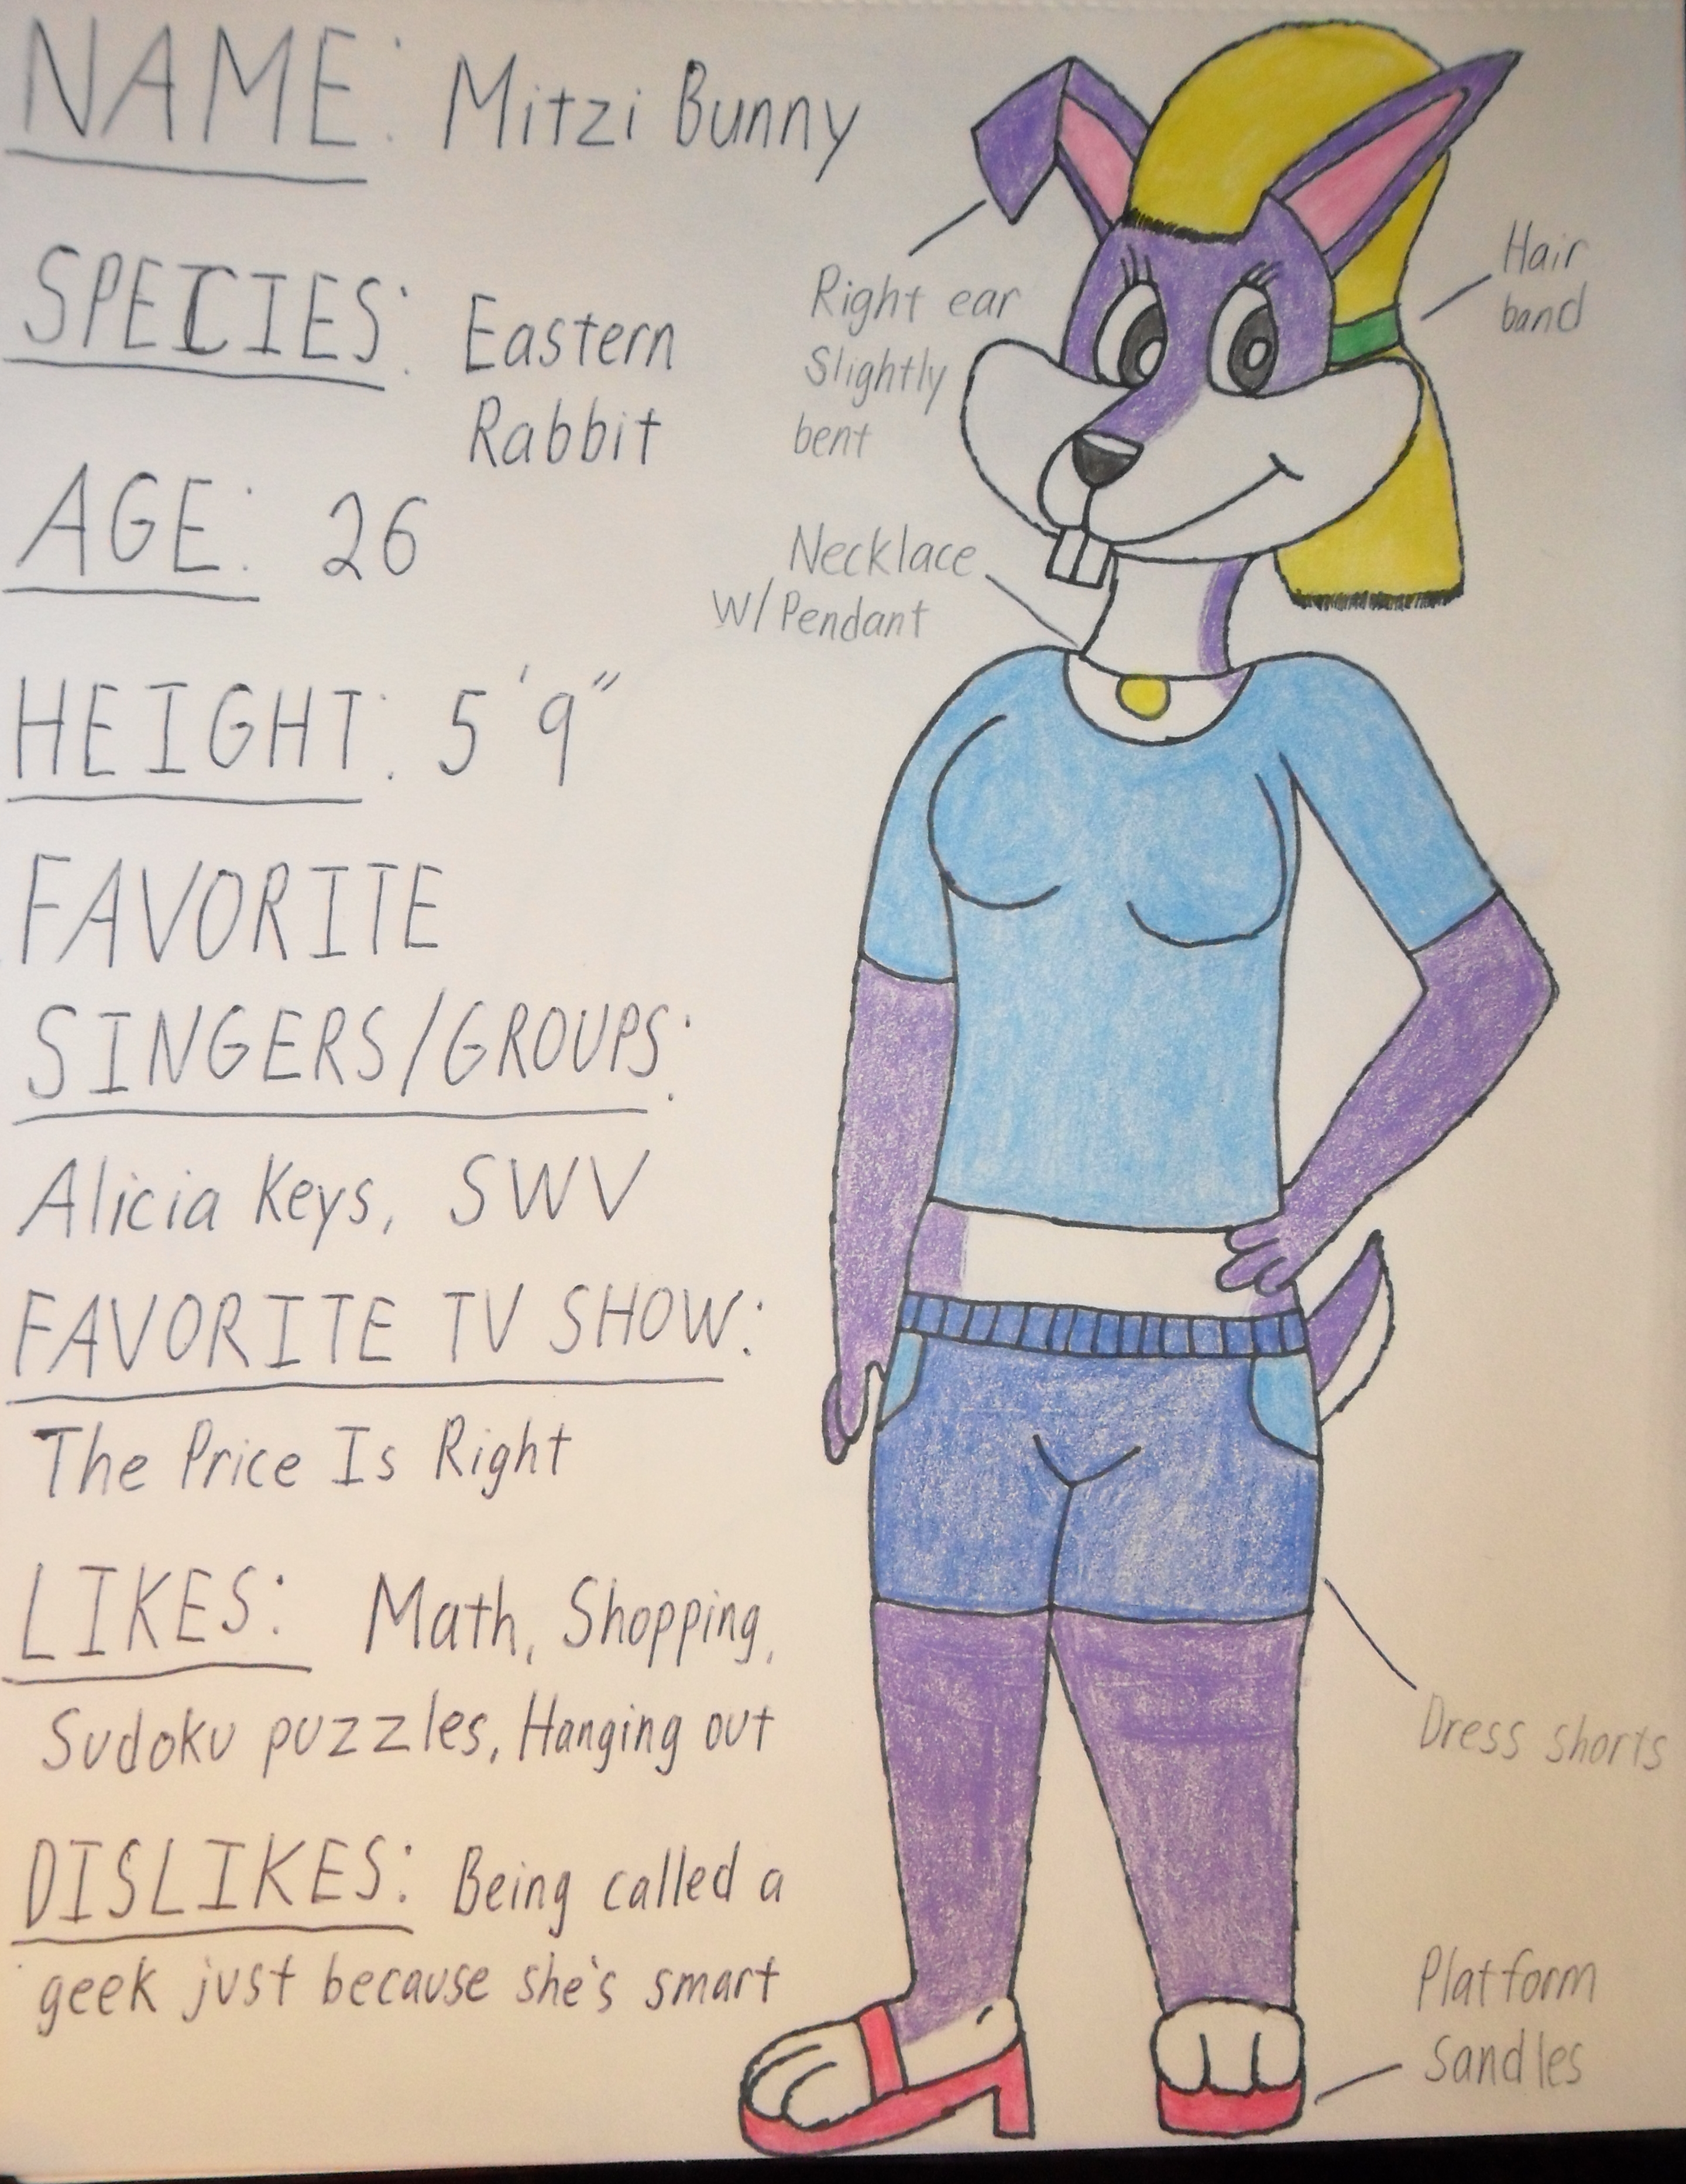 NAME: Mitzi Bunny
SPECIES: Eastern
Rabbit
AGE: 26
HEIGHT: 5'9"
FAVORITE
SINGERS/GROUPS:
Alicia Keys, SWV
FAVORITE TV SHOW:
The Price Is Right
LIKES: Math, Shopping,
Sudoku puzzles, Hanging out
DISLIKES: Being called a
geek just because she's smart
Right ear
Slightly
bent
Hair
band
Necklace
W/Pendant
Dress shorts
Platform
Sandles